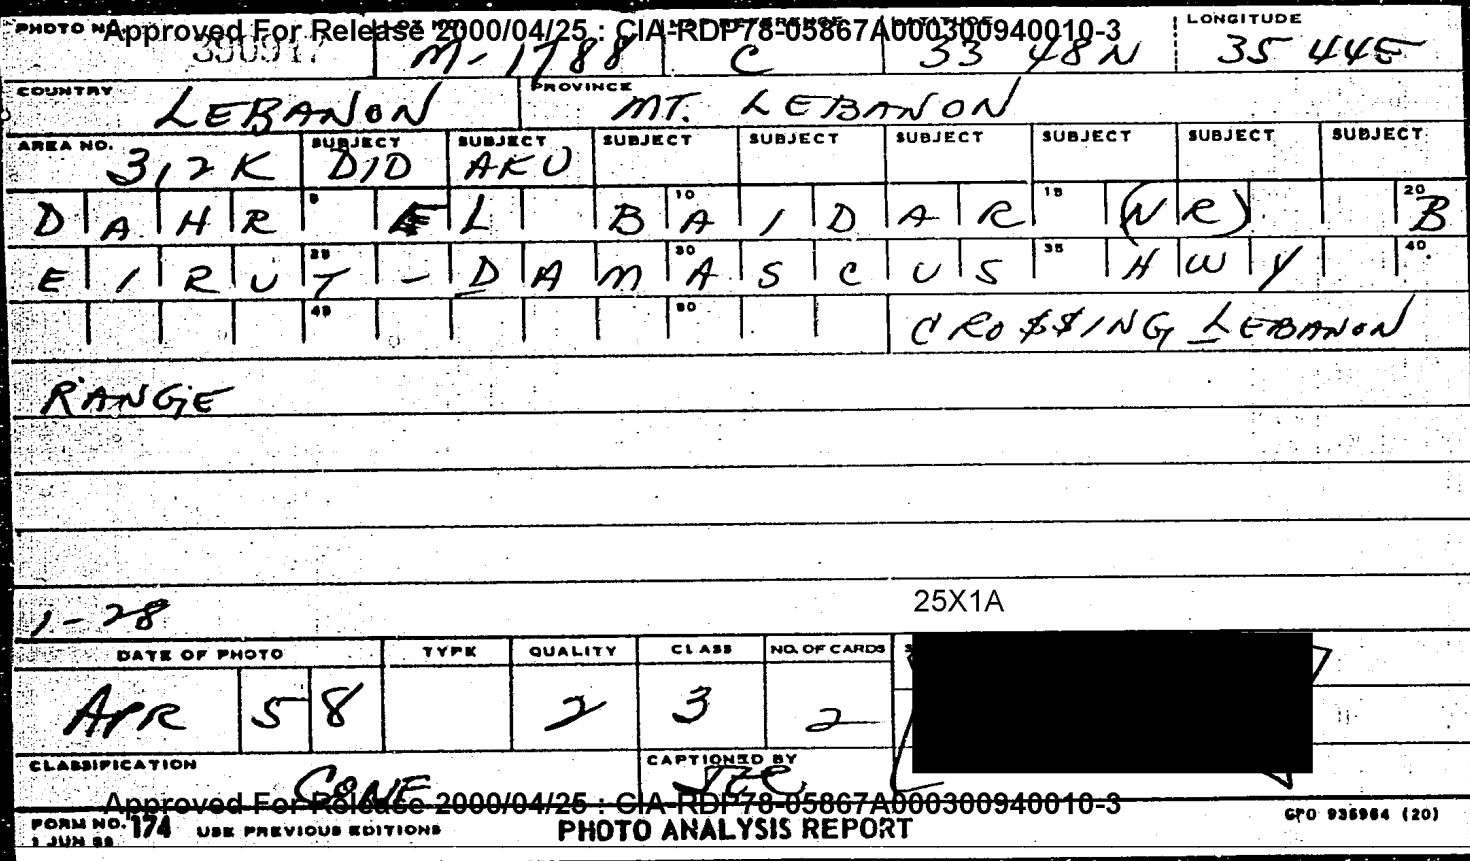 Approved For Release 2000/04/25 : CIA-RDP78-05867A000300940010-3
PHOTO NO. 390917 M-1788 C 33 48N LONGITUDE 35 44E
COUNTRY LEBANON PROVINCE MT. LEBANON
AREA NO. 3,2K SUBJECT DID SUBJECT AKU SUBJECT SUBJECT SUBJECT SUBJECT SUBJECT SUBJECT
DAHR EL BAIDAR (NR) B
EIRUT-DAMASCUS HWY
CRO$$ING LEBANON
RANGE
25X1A
1-28
DATE OF PHOTO TYPE QUALITY CLASS NO. OF CARDS
APR 58 2 3 2
CLASSIFICATION CAPTIONED BY
Approved For Release 2000/04/25 : CIA-RDP78-05867A000300940010-3
FORM NO. 174 USE PREVIOUS EDITIONS PHOTO ANALYSIS REPORT GPO 935964 (20)
1 JUN